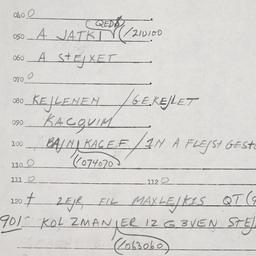 040 0
QEDB
050 A JATKI (/210100
060 A StEJXET
070 0
080 KEJLENEN /GEKEJLET
090 KACQVIM
100 BAJNIKAGEF / IN A FLEJSH GEST
(074070)
110 0
111 0 112 0
120 † ZEJR FIL MAXLEJKIS QT (9
901 KOL ZMAN ER IZ G3VEN STEJ
(063060)